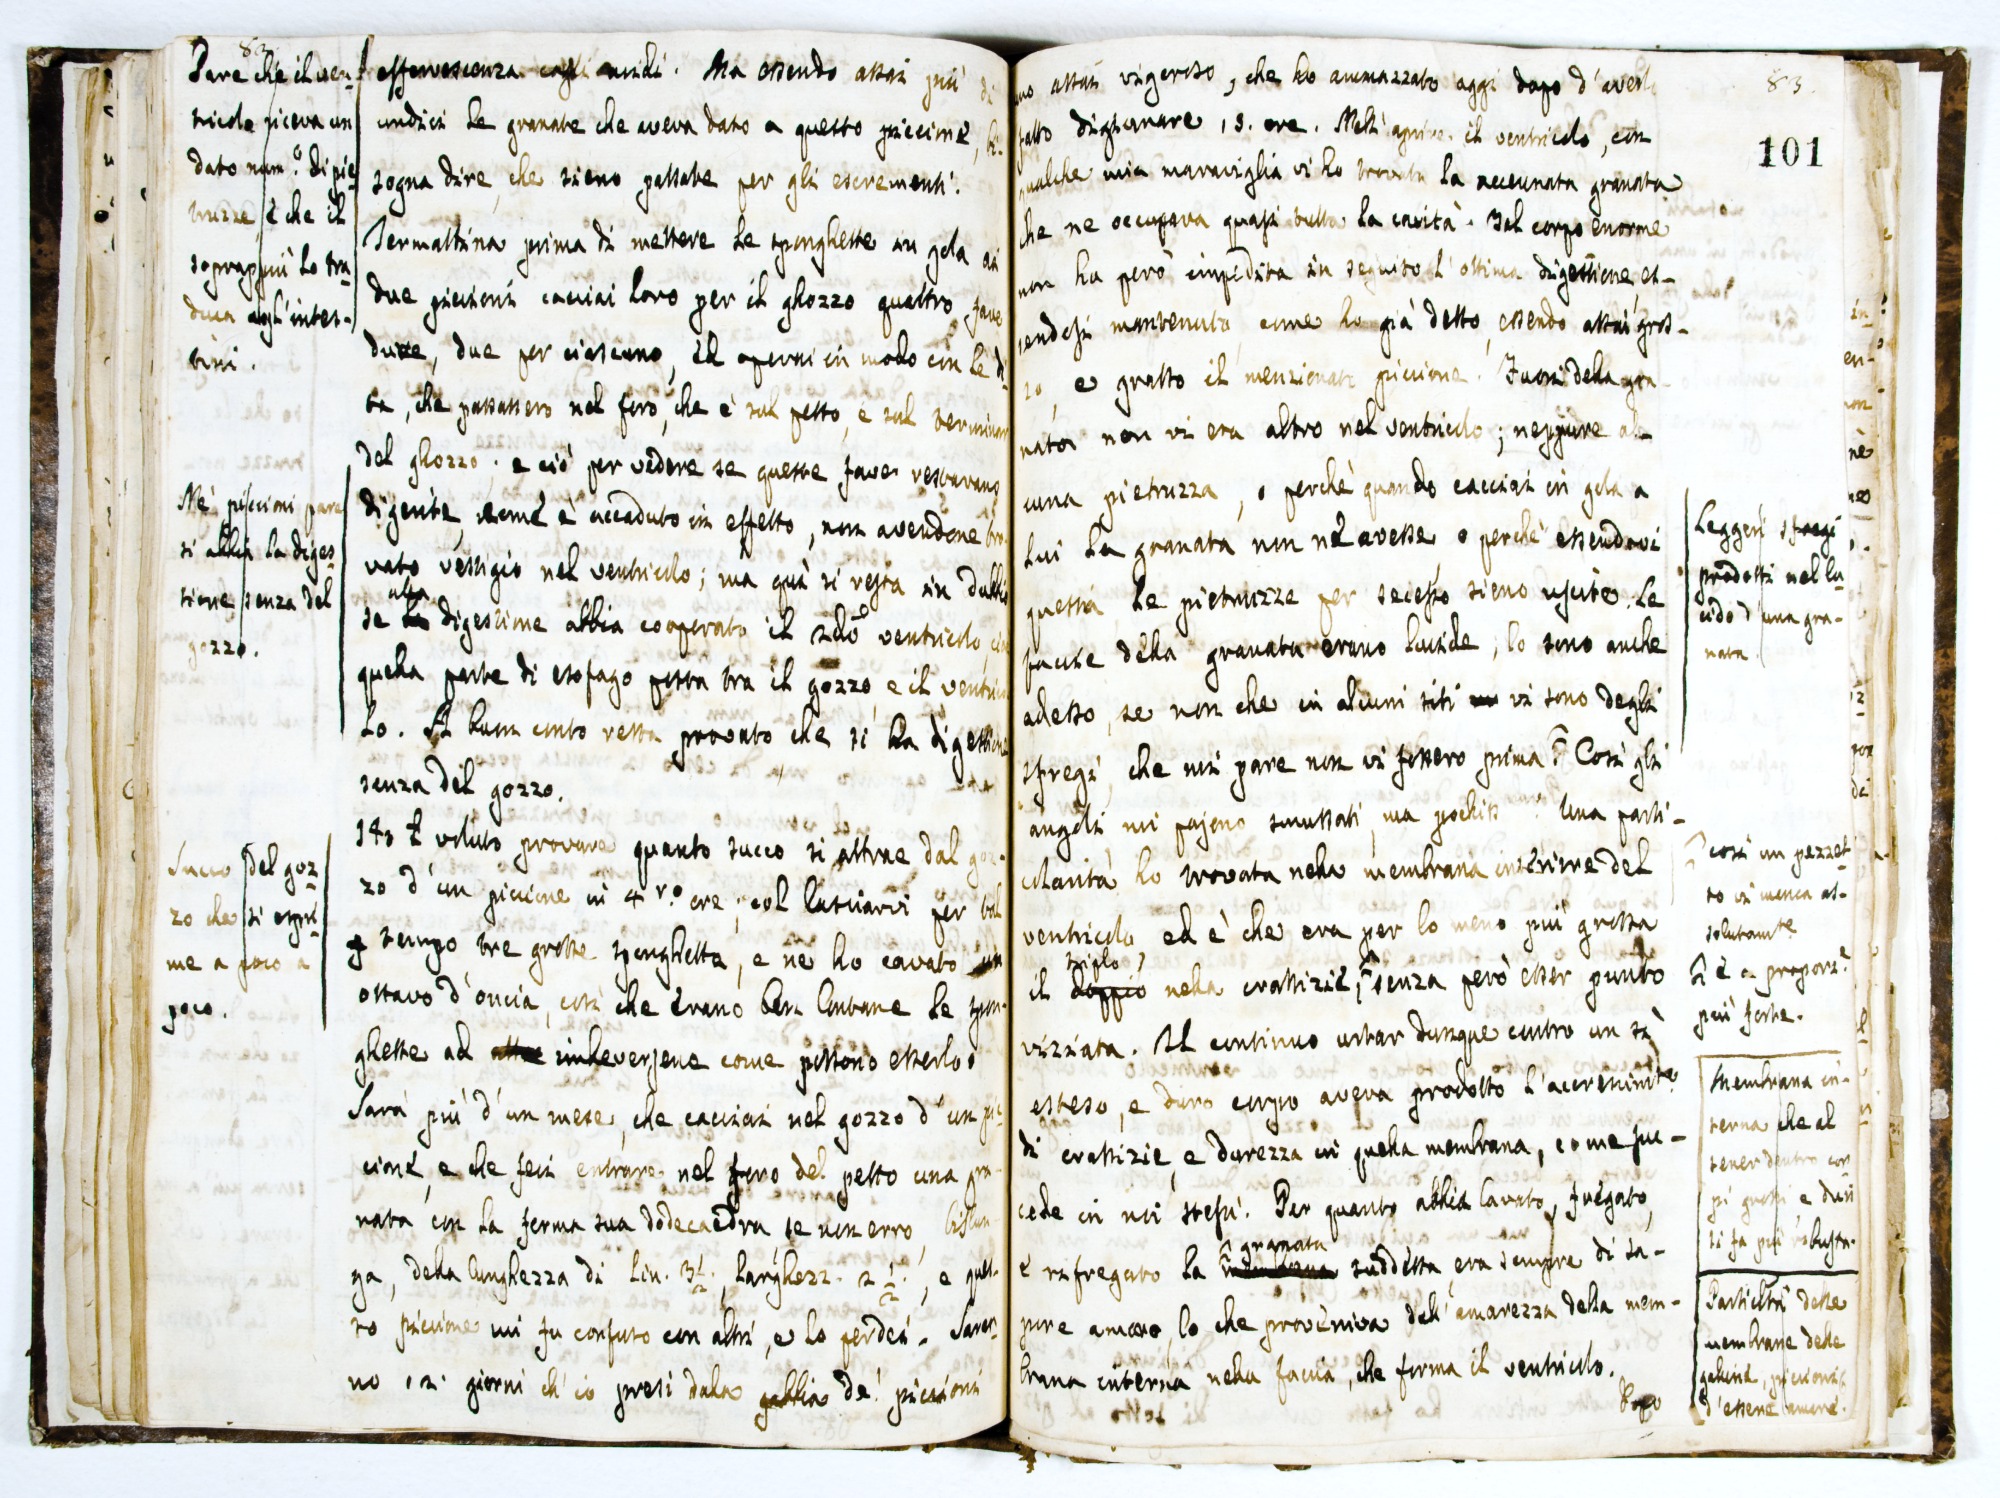 83.
Pare che il ven-
tricolo riceva un
dato num.o di pie-
truzze è che il
soprappiù lo tra-
duca agl'intes-
tini.
Ne' piccioni pare
si abbia la diges-
tione senza del
gozzo.
Succo del goz-
zo che si espri-
me a poco a
poco.
effervescenza cogli acidi. Ma essendo assai più di
undici le granate che aveva dato a questo piccione, bi-
sogna dire, che sieno passate per gli escrementi.
Jermattina prima di mettere le spunghette in gola ai
due piccioni cacciai loro per il ghozzo quattro fave
dure, due per ciascuno, ed operai in modo con le di-
ta, che passassero nel foro, che è sul petto, e sul terminar
del ghozzo; e ciò per vedere se queste fave restavano
digerite, come è accaduto in effetto, non avendone tro-
vato vestigio nel ventricolo; ma quì si resta in dubbio
se alla digestione abbia cooperato il sdo ventricolo, cioè
quella parte di esofago posta tra il gozzo, e il ventrico-
lo. A buon conto resta provato che si ha digestione
senza del gozzo.
143 È voluto provare quanto succo si attrae dal goz-
zo d'un piccione in 4ro ore, col lasciarvi per tal
tempo tre grosse spunghette, e ne ho cavato un
ottavo d'oncia, così che erano ben lontane le spun-
ghette ad imbeversene come possono esserlo.
Sarà più d'un mese, che cacciai nel gozzo d'un pic-
cione, e che feci entrare nel foro del petto una gra-
nata con la forma sua dodecaedra se non erro, bislun-
ga, della lunghezza di lin. 3 1/2, larghezz. 2 1/2, e ques-
to piccione mi fu confuso con altri, e lo perdei. Saran-
no 12 giorni ch'io presi dalla gabbia de' piccioni
83.
101
uno assai vigoroso, che ho ammazzato oggi dopo d'averlo
fatto digiunare 13. ore. Messi aprire il ventricolo, con
qualche mia maraviglia vi ho trovata la accennata granata
che ne occupava quasi tutta la cavità. Tal corpo enorme
non ha però impedita in seguito l'ottima digestione es-
sendosi mantenuto, come ho già detto, essendo assai gros-
so, e grasso il menzionato piccione. Fuori della gra-
nata non vi era altro nel ventricolo; neppure al-
cuna pietruzza, o perchè quando cacciai in gola a
lui la granata non ne avesse, o perchè essendovi
questa le pietruzze per secesso sieno uscite. Le
faccie della granata erano lucide; lo sono anche
adesso, se non che in alcuni siti vi sono degli
sfregi, che mi pare non vi fossero prima. Così gli
angoli mi pajono smussati, ma pochiss.o Una parti-
colarità ho trovata nella membrana interiore del
ventricolo, ed è che era per lo meno più grossa
il triplo doppio nella crassizie, senza però esser punto
vizziata. Il continuo urtar dunque contro un sì
esteso, e duro corpo aveva prodotto l'accrescim.to
di crassizie, e durezza in quella membrana, come suc-
cede in noi stessi. Per quanto abbia lavato, fregato,
e rifregato la granata suddetta, era sempre di sa-
pore amaro, lo che proveniva dall'amarezza della mem-
brana interna nella faccia, che forma il ventricolo.
Dopo
Leggeri sfregi
prodotti nel lu-
cido d'una gra-
nata.
così un pezzet-
to vi manca as-
solutam.te
è a proporz.e
più forte.
Membrana in-
terna che al
tener dentro cor-
pi grossi, e duri
si fa più robusta.
Particolri delle
membrane delle
galline, piccioni
d'essere amare.